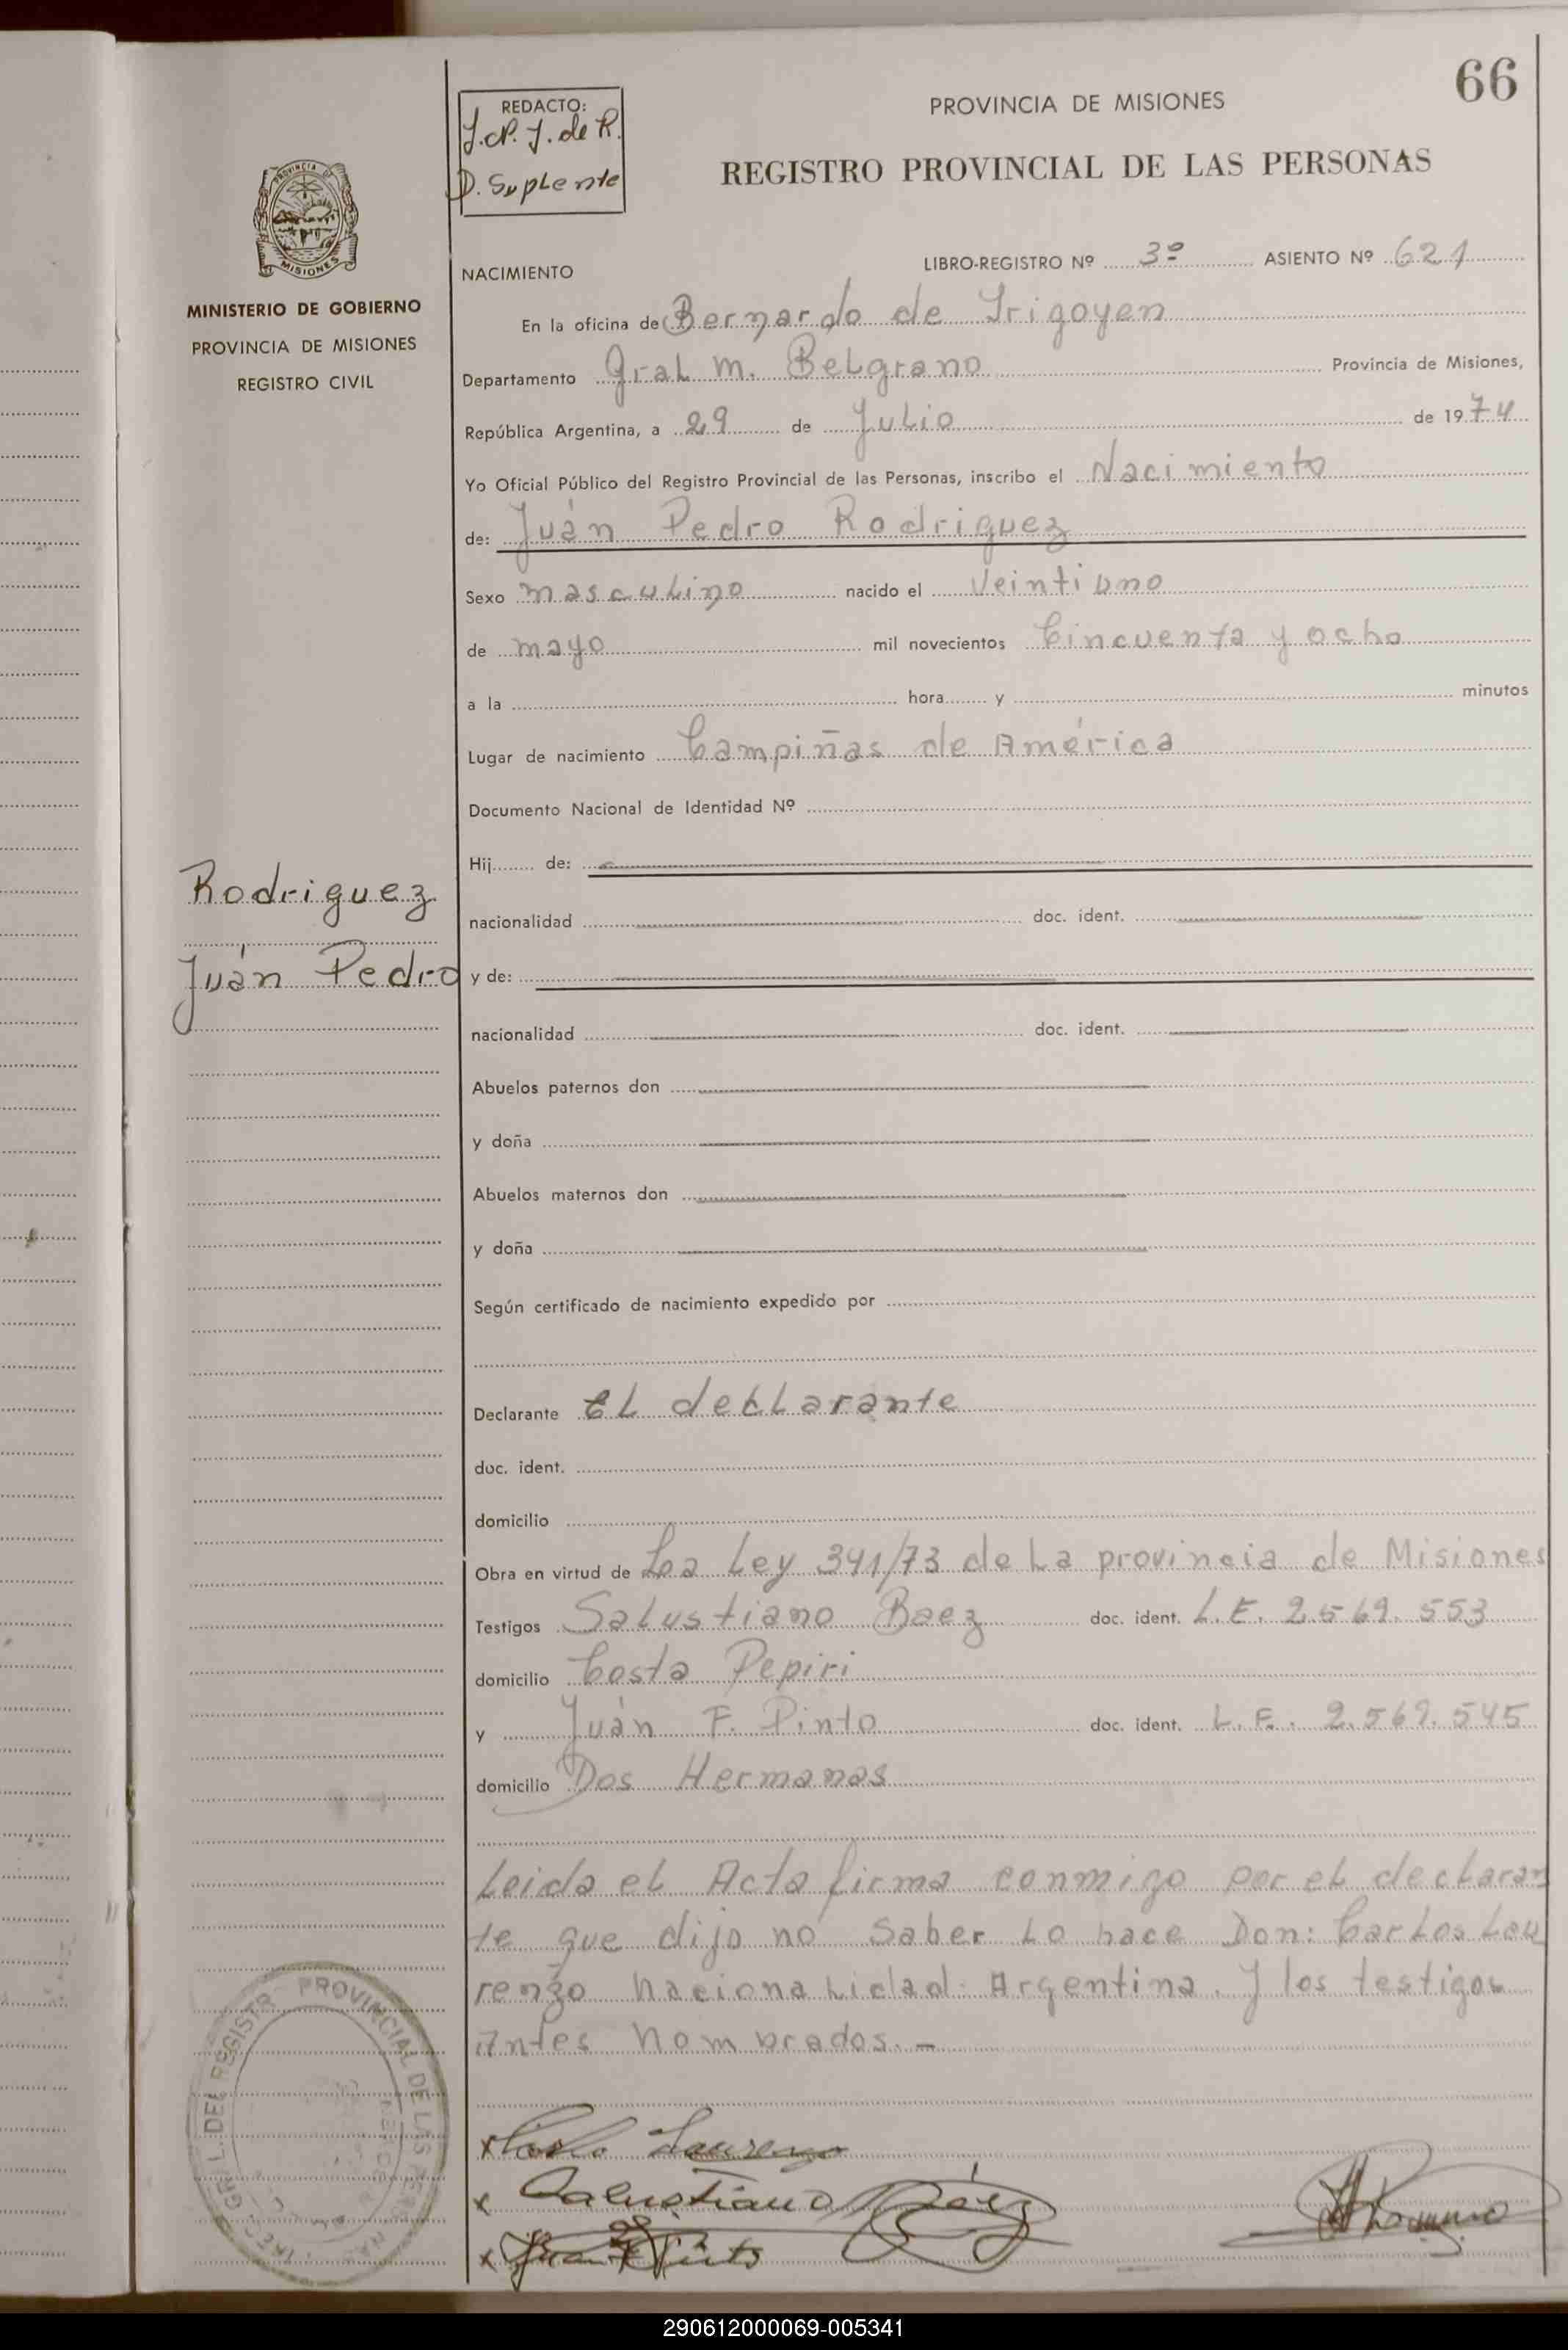 66
REDACTO:
J.N.J. de R.
D. Suplente
PROVINCIA DE MISIONES
REGISTRO PROVINCIAL DE LAS PERSONAS
PROVINCIA DE
MISIONES
MINISTERIO DE GOBIERNO
PROVINCIA DE MISIONES
REGISTRO CIVIL
LIBRO-REGISTRO Nº 3º ASIENTO Nº 621
NACIMIENTO
En la oficina de Bernardo de Irigoyen
Departamento Gral M. Belgrano Provincia de Misiones,
República Argentina, a 29 de Julio de 1974
Yo Oficial Público del Registro Provincial de las Personas, inscribo el Nacimiento
de: Juán Pedro Rodriguez
Sexo masculino nacido el Veintiuno
de mayo mil novecientos Cincuenta y ocho
a la hora y minutos
Lugar de nacimiento Campiñas de América
Documento Nacional de Identidad Nº
Hij de:
Rodriguez
Juán Pedro
nacionalidad doc. ident.
y de:
nacionalidad doc. ident.
Abuelos paternos don
y doña
Abuelos maternos don
y doña
Según certificado de nacimiento expedido por
Declarante EL decLarante
doc. ident.
domicilio
Obra en virtud de La Ley 341/73 de La provincia de Misiones
Testigos Salustiano Baez doc. ident. L.E. 2.569.553
domicilio Costa Pepiri
y Juán F. Pinto doc. ident. L.E. 2.569.545
domicilio Dos Hermanas
Leida el Acta firma conmigo por el declaran
te que dijo no saber Lo hace Don: Carlos Lau
renzo Nacionalidad Argentina. y los testigos
antes nombrados.-
x Carlo Laurenzo
x Salustiano Báez
x Juan F Pinto
DEL REGISTR PROVINCIAL DE LAS PERS
290612000069-005341